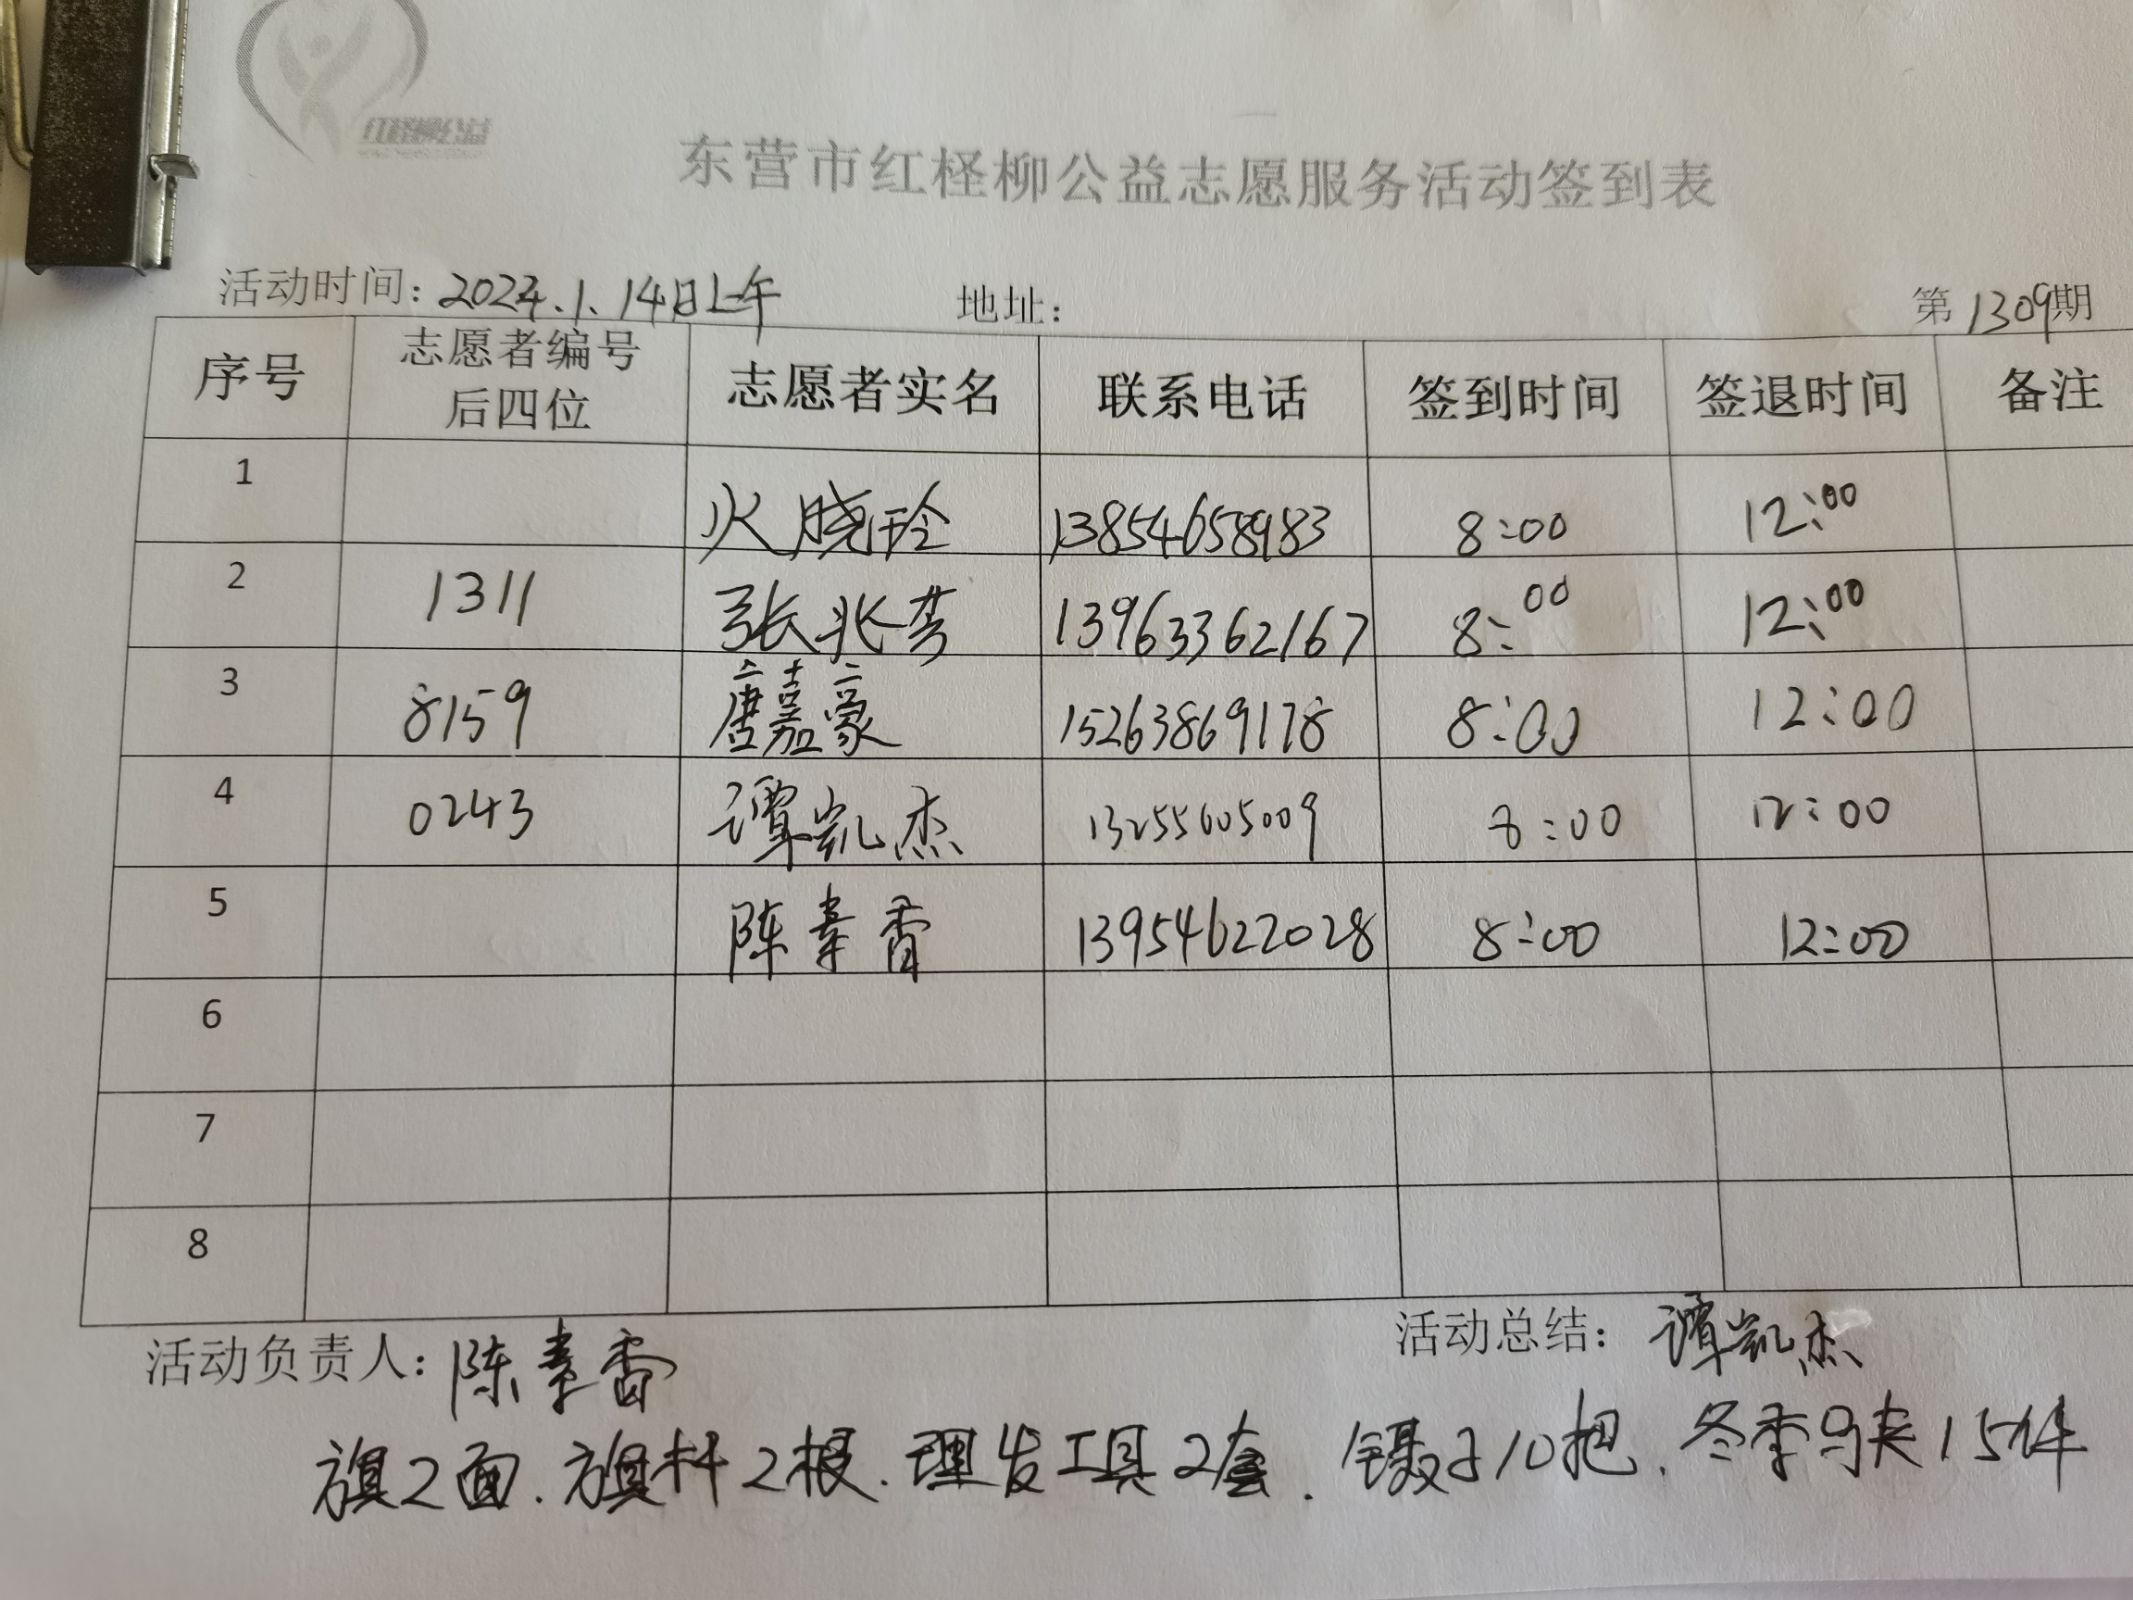 红柽柳公益
东营市红柽柳公益志愿服务活动签到表
活动时间：2024.1.14日上午 地址： 第1309期
序号 志愿者编号后四位 志愿者实名 联系电话 签到时间 签退时间 备注
1 火晓玲 13854658983 8:00 12:00
2 1311 张兆芬 13963362167 8:00 12:00
3 8159 唐嘉豪 15263869178 8:00 12:00
4 0243 谭凯杰 13255605009 8:00 12:00
5 陈素香 13954622028 8:00 12:00
6
7
8
活动负责人：陈素香 活动总结：谭凯杰
旗2面.旗杆2根.理发工具2套.镊子10把.冬季马夹15件